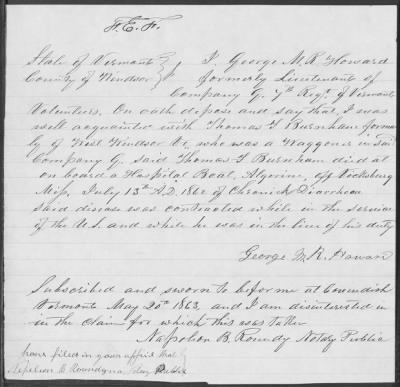 F. E. F.
State of Vermont } I. George M. R. Howard
County of Windsor } formerly Lieutenant of
Company G. 7th Regt. of Vermont
Volunteers. On oath depose and say that, I was
well acquainted with Thomas F Burnham former
ly of West Windsor Vt, who was a Waggoner in said
Company G. said Thomas F Burnham died at
on board a Hospital Boat, Algerine, off Vicksburg
Miss, July 13th A.D. 1862 of Chronick Diarrhoea
said disease was contracted while in the service
of the U.S. and while he was in the line of his duty
George M. R. Howard
Subscribed and sworn to before me at Cavendish
Vermont May 20th 1863, and I am disinterested in
in the Claim for which this was taken
Napoleon B. Roundy Notary Public
have filed in your office that of
Napoleon B Roundy Notary Public